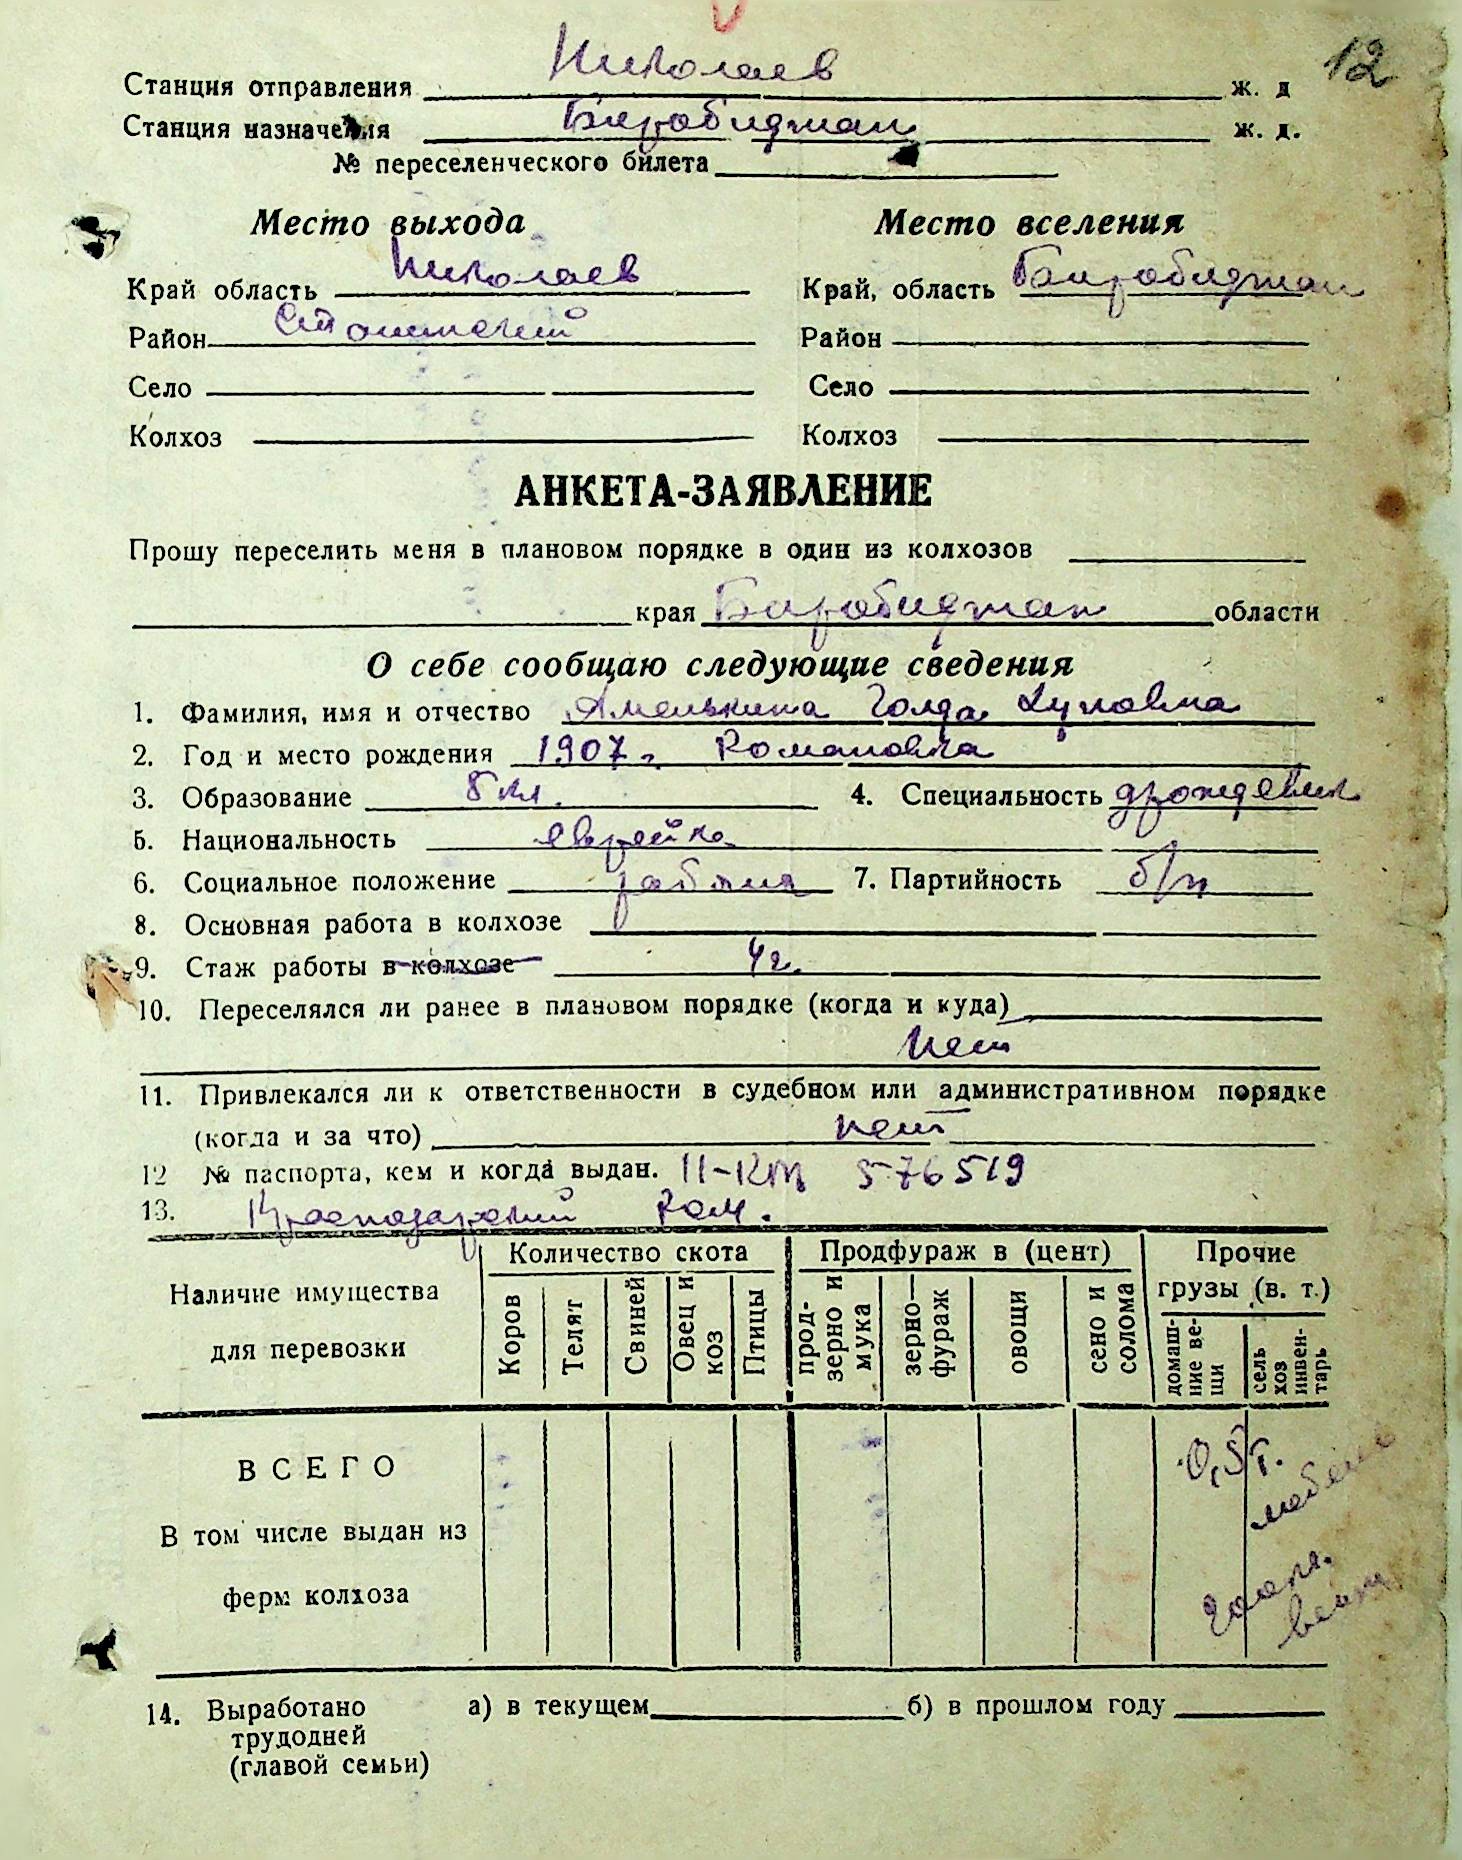 12
Николаев
Станция отправления ж. д
Биробиджан
Станция назначения ж. д.
№ переселенческого билета
Место выхода Место вселения
Край область Николаев Край, область Биробиджан
Район Район
Село Село
Колхоз Колхоз
АНКЕТА-ЗАЯВЛЕНИЕ
Прошу переселить меня в плановом порядке в один из колхозов
края Биробиджан области
О себе сообщаю следующие сведения
1. Фамилия, имя и отчество Амелькина Голда
2. Год и место рождения 1907 г. Романовка
3. Образование 5 кл. 4. Специальность
5. Национальность еврейка
6. Социальное положение 7. Партийность б/п
8. Основная работа в колхозе
9. Стаж работы в колхозе 4 г.
10. Переселялся ли ранее в плановом порядке (когда и куда)
нет
11. Привлекался ли к ответственности в судебном или административном порядке
(когда и за что) нет
12 № паспорта, кем и когда выдан. 576519
13.
Наличие имущества для перевозки
Количество скота
Продфураж в (цент)
Прочие грузы (в. т.)
Коров
Телят
Свиней
Овец и коз
Птицы
прод-зерно и мука
зерно-фураж
овощи
сено и солома
домаш-ние ве-щи
сель хоз инвен-тарь
ВСЕГО 0,5 т.
мебель
В том числе выдан из
ферм колхоза
вещи
14. Выработано а) в текущем б) в прошлом году
трудодней
(главой семьи)